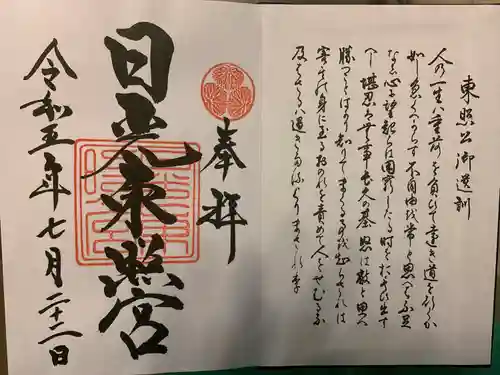 東照公御遺訓
人の一生ハ重荷を負ひて遠き道を行くか
如し急くへからす不自由を常と思へハ不足
なし心に望起らは困窮したる時を思ひ出す
へし堪忍ハ無事長久の基怒は敵と思へ
勝つことはかり知りてまくるを知らされは
害其の身に至るおのれを責めて人をせむるな
及はさるハ過きたるよりまされり
奉拝
日光東照宮
令和五年七月二十二日